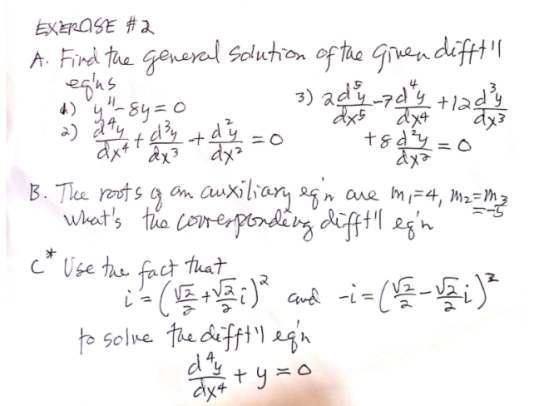 EXERCISE #2
A. Find the general solution of the given difft'l
eq'ns
1) y'' - 8y = 0
2) d⁴y/dx⁴ + d³y/dx³ + d²y/dx² = 0
3) 2 d⁵y/dx⁵ - 7 d⁴y/dx⁴ + 12 d³y/dx³
+ 8 d²y/dx² = 0
B. The roots of an auxiliary eq'n are m₁=4, m₂=m₃
=-5
what's the corresponding difft'l eq'n
C* Use the fact that
i = (√2/2 + √2/2 i)² and -i = (√2/2 - √2/2 i)²
to solve the difft'l eq'n
d⁴y/dx⁴ + y = 0